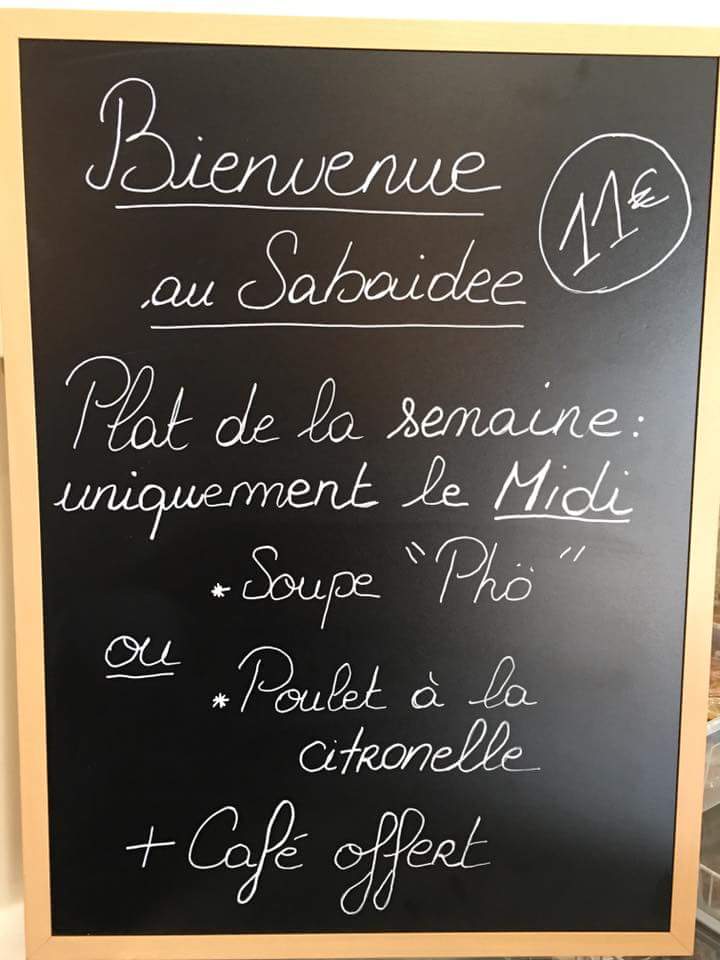 Bienvenue
au Sabaidee
11€
Plat de la semaine :
uniquement le Midi
* Soupe "Phö"
ou
* Poulet à la
citronelle
+ Café offert